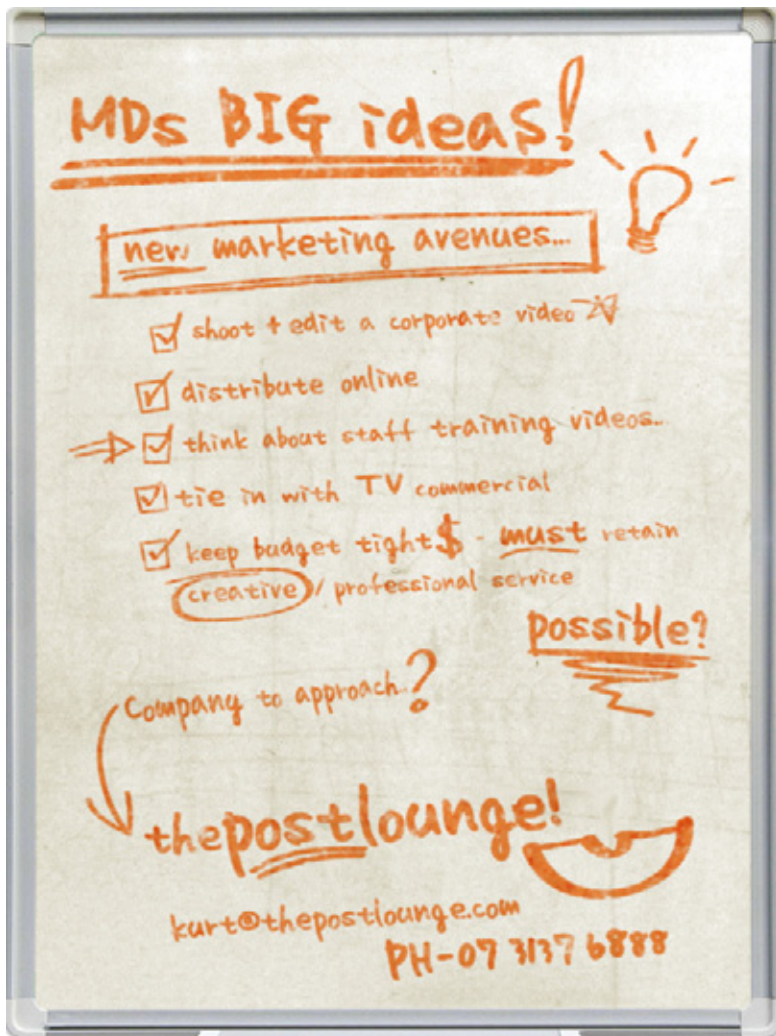 MDs BIG ideas!
new marketing avenues...
shoot + edit a corporate video
distribute online
think about staff training videos...
tie in with TV commercial
keep budget tight $ - must retain
creative / professional service
possible?
Company to approach..?
thepostlounge!
kurt@thepostlounge.com
PH-07 3137 6888